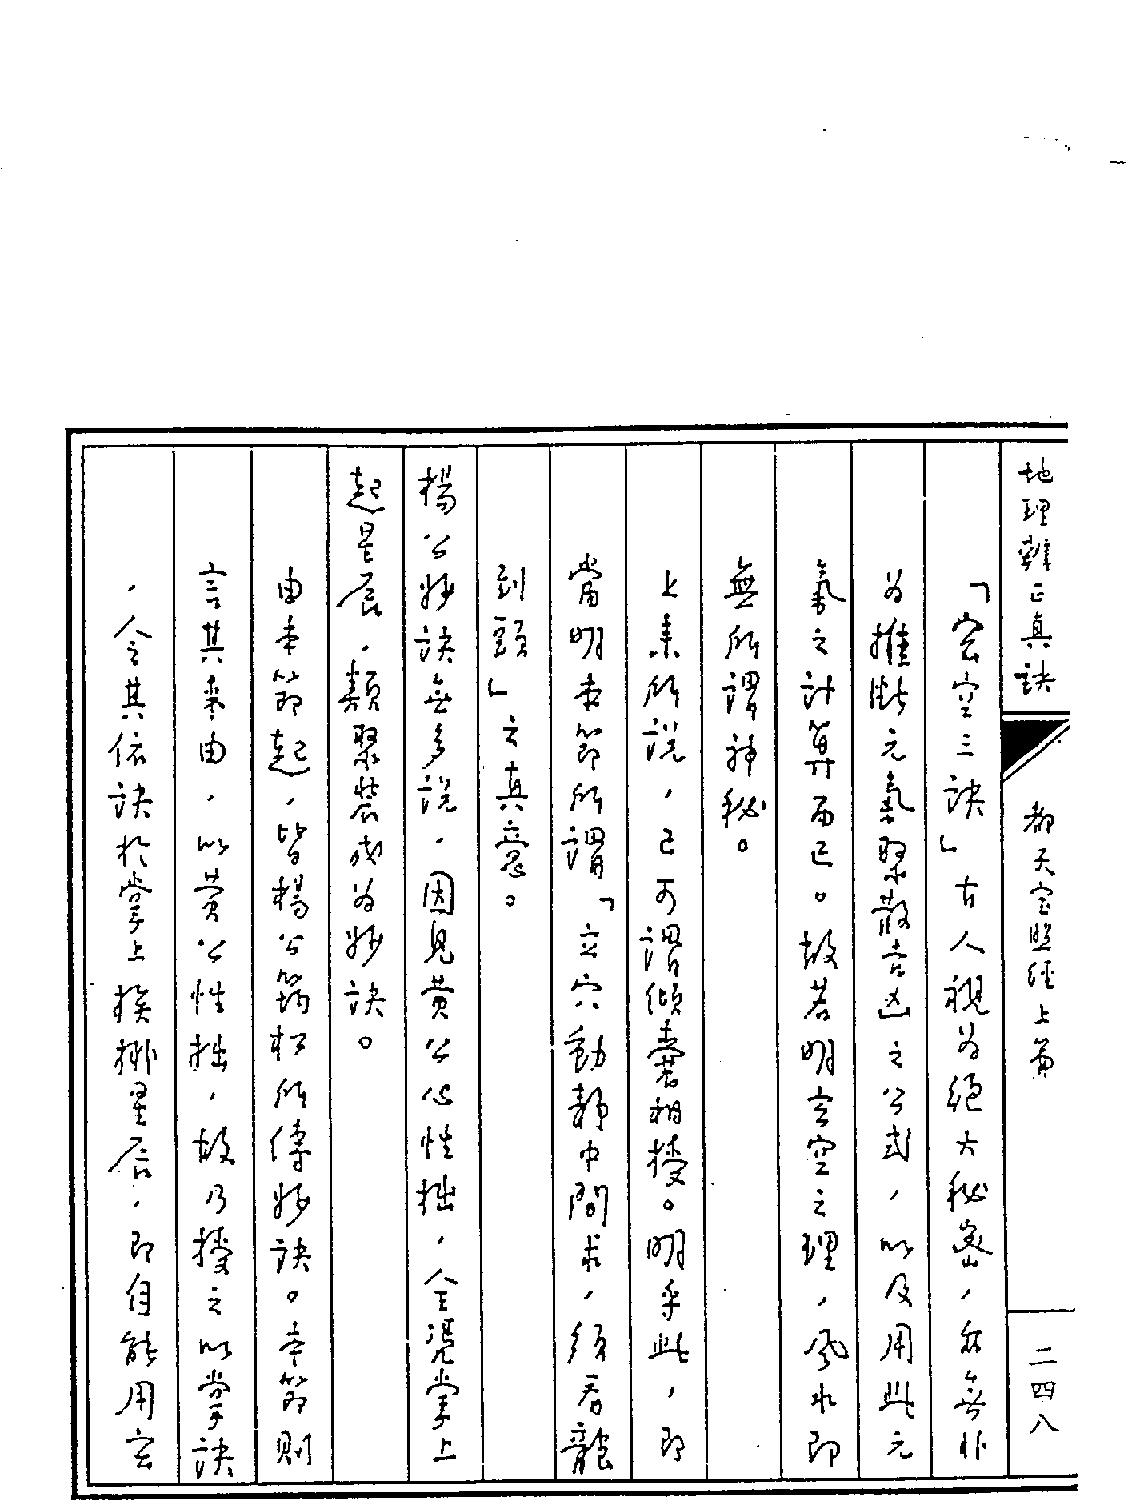 地理辨正真訣　都天宝照經上篇　二四八
「玄空三訣」古人視为絕大秘密，無非
为推断元氣聚散吉凶之公式，以及用此元
氣之計算而已。故若明玄空之理，風水即
無所謂神秘。
上來所說，已可謂傾囊相授。明乎此，即
當明本節所謂「立穴動靜中間求，須看龍
到頭」之真意。
楊公妙訣無多說，因見黄公心性拙，全憑掌上
起星辰，類聚裝成为妙訣。
由本節起，皆楊公筠松所傳妙訣。本節則
言其來由，以黄公性拙，故乃授之以掌訣
，令其依訣於掌上挨排星辰，即自能用玄